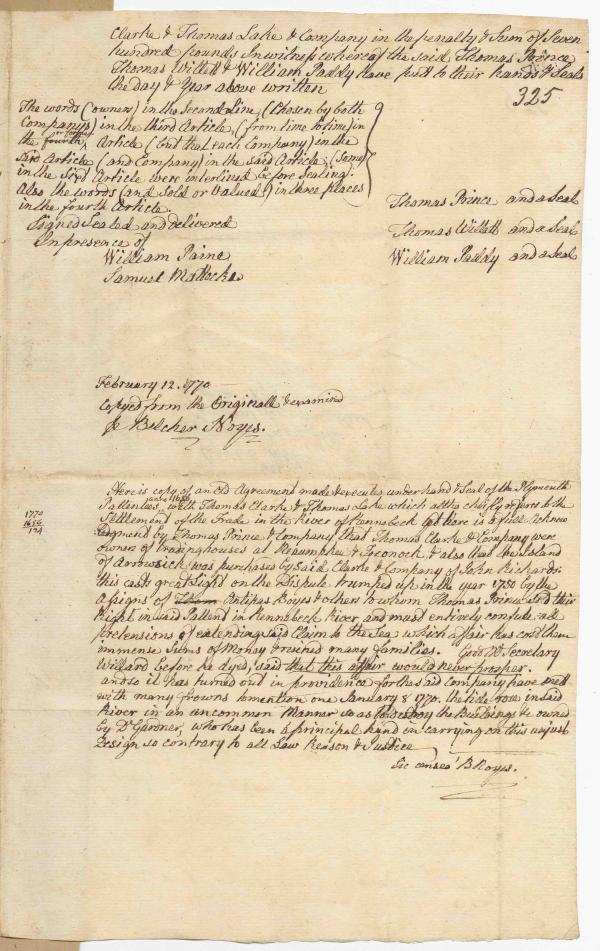 Clarke & Thomas Lake & Company in the penalty & Sum of Seven
hundred pounds In witness whereof the said Thomas Prince
Thomas Willett & William Paddy have putt to their hands & Seals
the day & Year above written
325
The words (owners) in the Second line, (Chosen by both
Companys) in the third Article, (from time to time) in
the fourth Article (but that each Company) in the
said Article (and Company) in the said Article, (some)
in the said Article were interlined before Sealing.
Also the words (and Sold or Valued) in three places
in the fourth Article.
Signed Sealed and delivered
In presence of
William Paine
Samuel Mattocke
Thomas Prince and a Seal
Thomas Willett and a Seal
William Paddy and a Seal
February 12. 1770
Copyed from the Originall & examined
Belcher Noyes.
Here is copy of an Old Agreement made & executed under hand & Seal of the Plymouth
Pattentees with Thomas Clarke & Thomas Lake which altho chiefly referrs to the
Settlement of the Trade in the River of Kennebeck yet here is a full acknow
ledgment by Thomas Prince & Company that Thomas Clarke & Company were
owners of trading houses at & Teconock & also that the Island
of Arrowsick was purchased by said Clarke & Company of John Richards:
this casts great light on the Dispute trumped up in the year 1750 by the
Assigns of Antipas Boyes & others to whom Thomas Prince sold their
Right in said Pattent in Kennebeck River, and must entirely confute all
pretensions of extending said Claim to the Sea; which affair has cost them
immense Sums of Money & ruined many families. Good Mr Secretary
Willard before he dyed, said that this affair would never prosper.
and so it has turned out in providence for the said Company have mett
with many frowns to mention one January 8. 1770. the tide rose in said
River in an uncommon Manner so as to destroy the Buildings &c owned
by Dr Gardner, who has been a principal hand in carrying on this unjust
Design so contrary to all Law Reason & Justice
Sic censeo B Noyes.
1770
1656
114